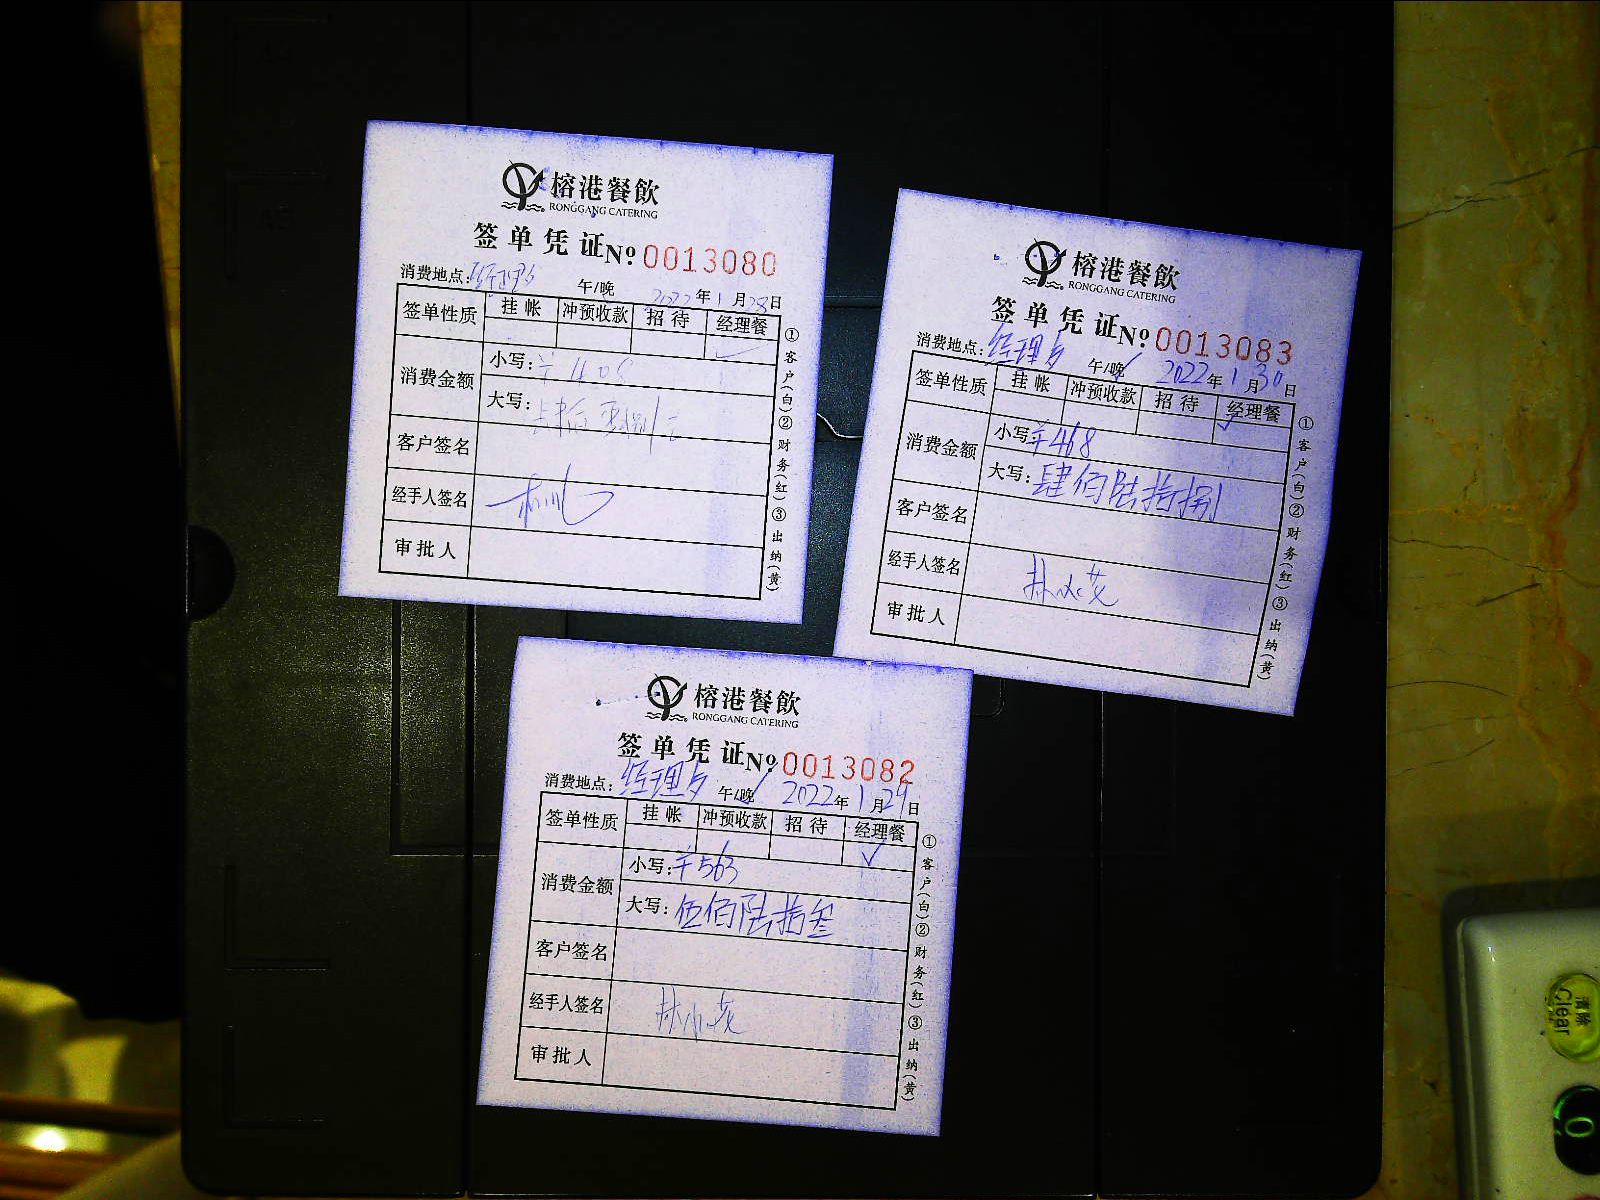 榕港餐飲
RONGGANG CATERING
签单凭证 Nº 0013080
消费地点: 午/晚 2022年1月28日
签单性质 挂帐 冲预收款 招待 经理餐
✓
消费金额
小写:
大写:
客户签名
经手人签名
审批人
①客户(白)②财务(红)③出纳(黄)
榕港餐飲
RONGGANG CATERING
签单凭证 Nº 0013083
消费地点: 经理 午/晚✓ 2022年1月30日
签单性质 挂帐 冲预收款 招待 经理餐
✓
消费金额
小写:¥468
大写:肆佰陆拾捌
客户签名
经手人签名
审批人
①客户(白)②财务(红)③出纳(黄)
榕港餐飲
RONGGANG CATERING
签单凭证 Nº 0013082
消费地点: 经理 午/晚✓ 2022年1月29日
签单性质 挂帐 冲预收款 招待 经理餐
✓
消费金额
小写:¥563
大写:伍佰陆拾叁
客户签名
经手人签名
审批人
①客户(白)②财务(红)③出纳(黄)
清除
Clear
0